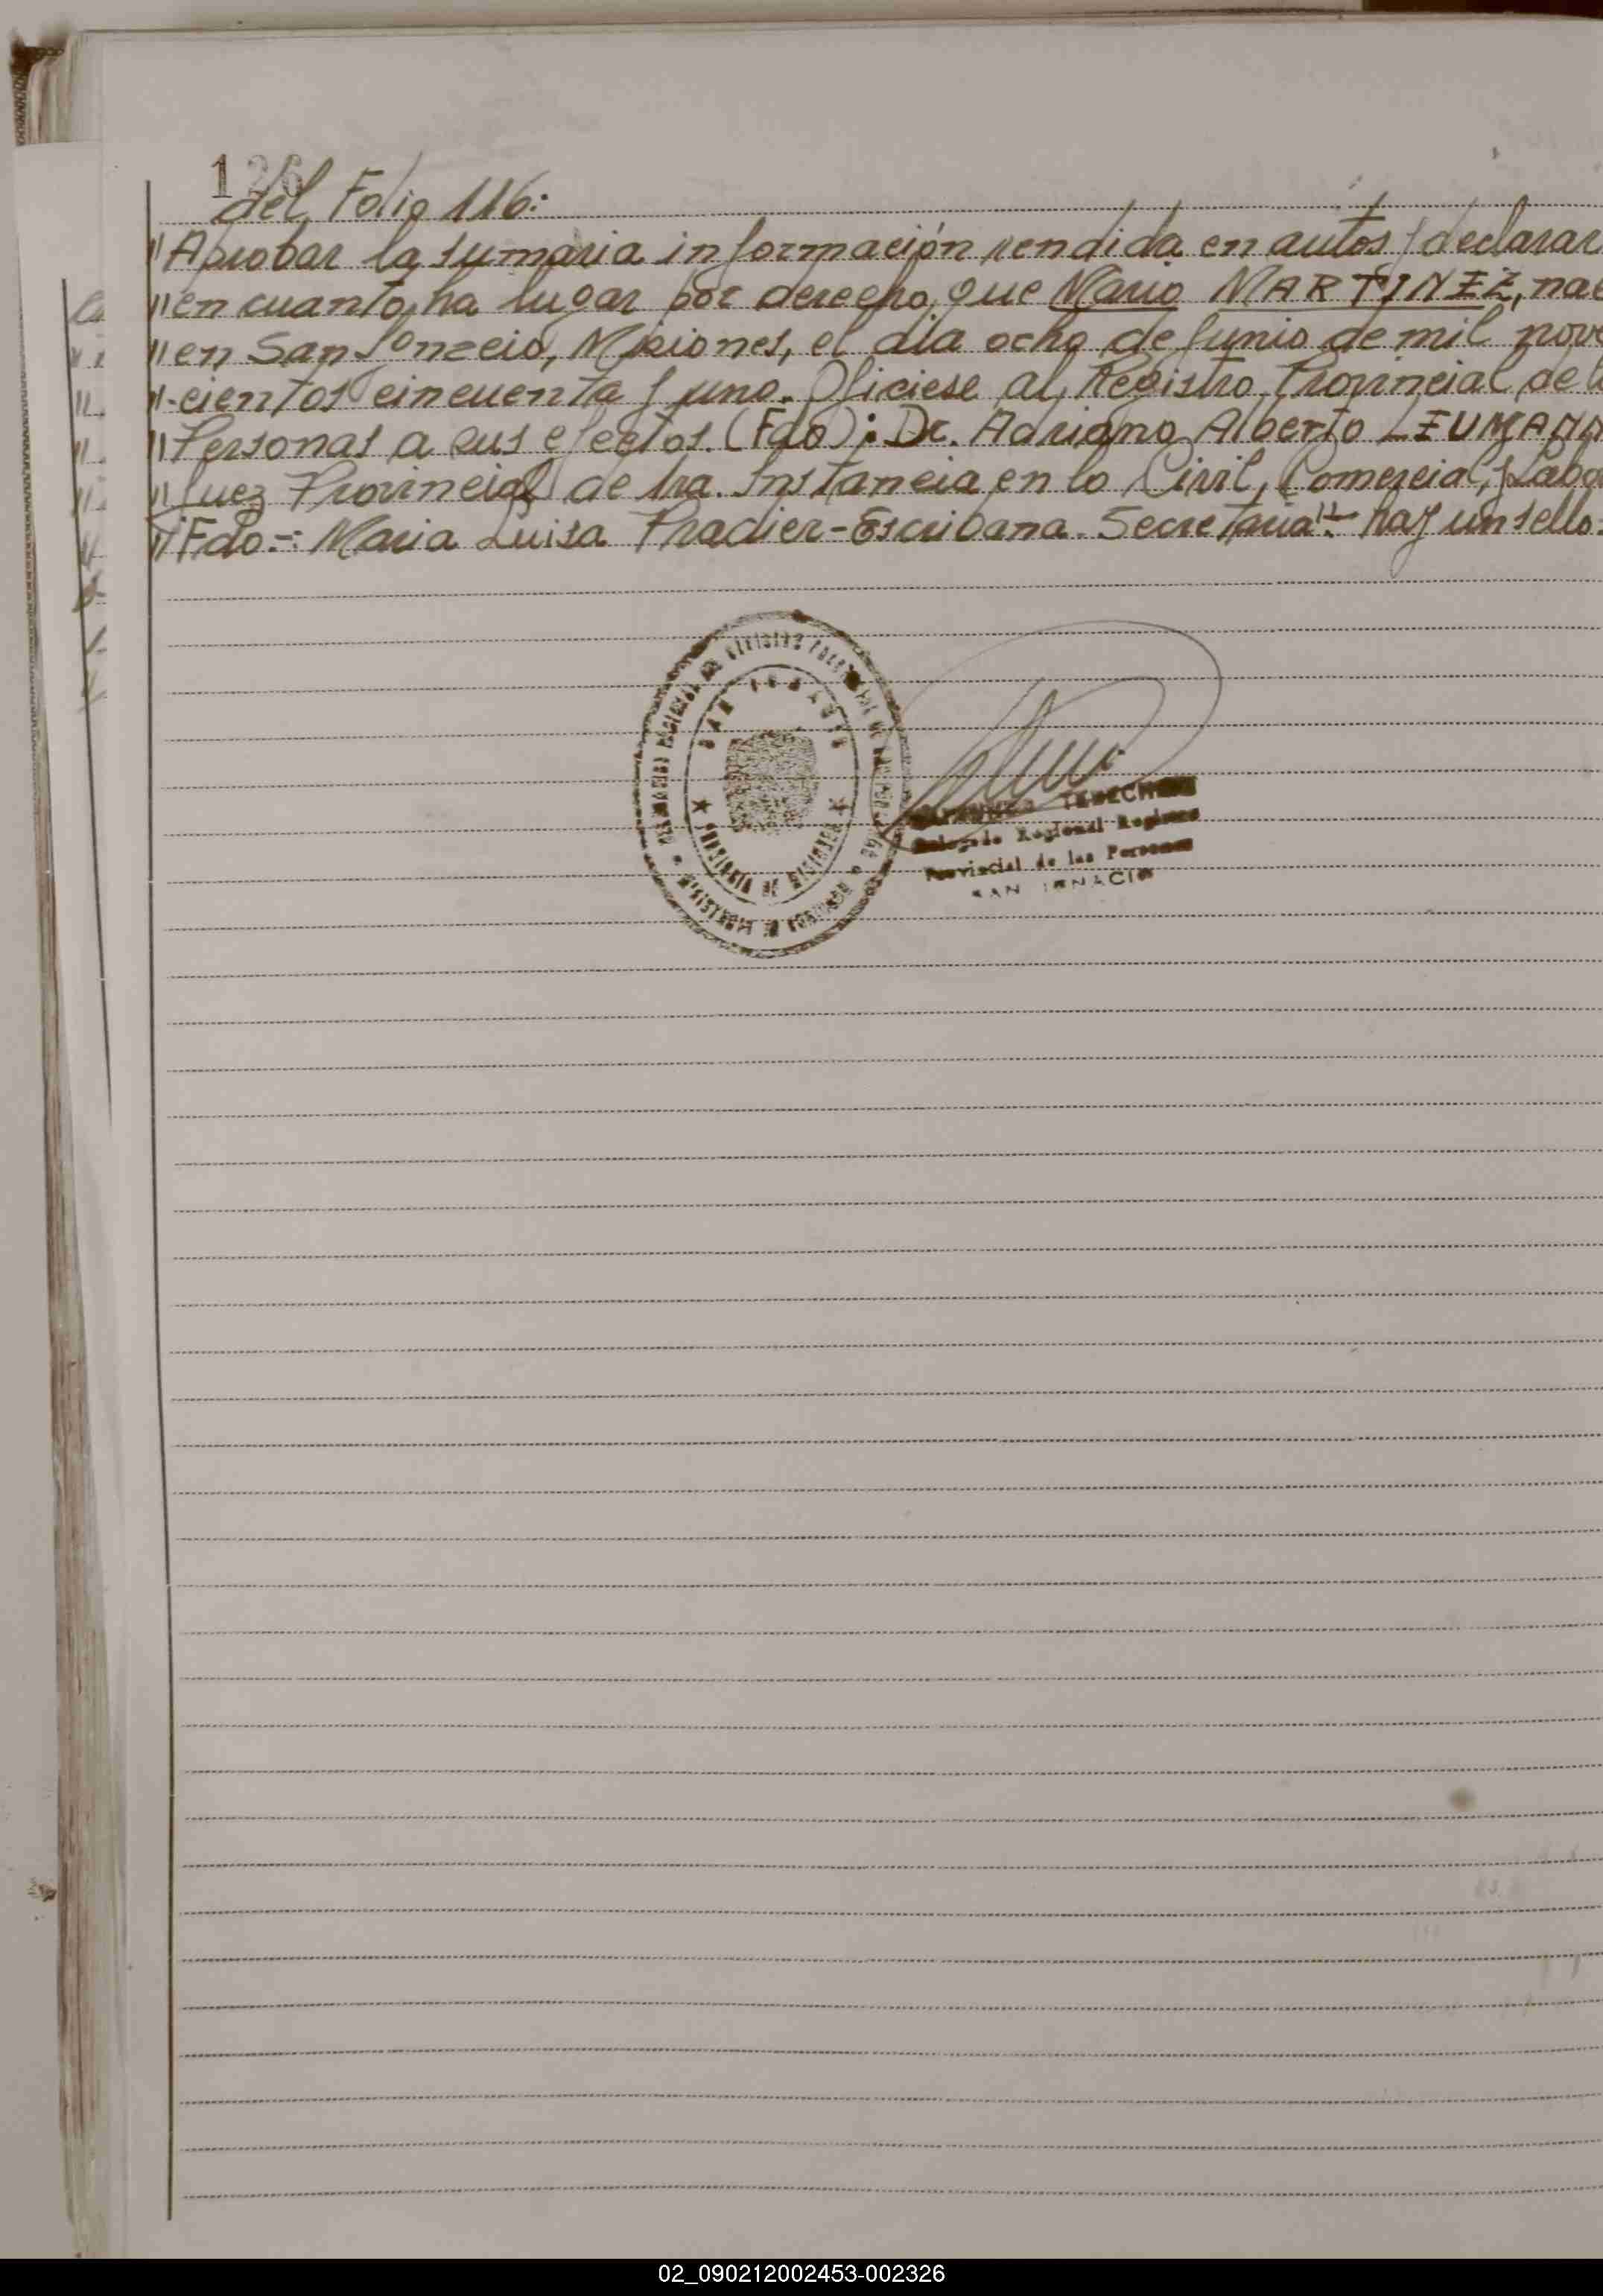 126
del Folio 116:
"Aprobar la sumaria información rendida en autos y declarar
"en cuanto ha lugar por derecho, que Mario MARTINEZ, nac
"en San Ignacio, Misiones, el día ocho de Junio de mil nove
"-cientos cincuenta y uno. Ofíciese al Registro Provincial de l
"Personas a sus efectos. (Fdo): Dr. Adriano Alberto LEUMANN
"Juez Provincial de 1ra. Instancia en lo Civil, Comercial, y Labo
"Fdo.-: Maria Luisa Pradier-Escribana. Secretaria"- hay un sello:
SAN IGNACIO
PROVINCIA DE MISIONES
Delegado Regional Registro
Provincial de las Personas
SAN IGNACIO
02_090212002453-002326